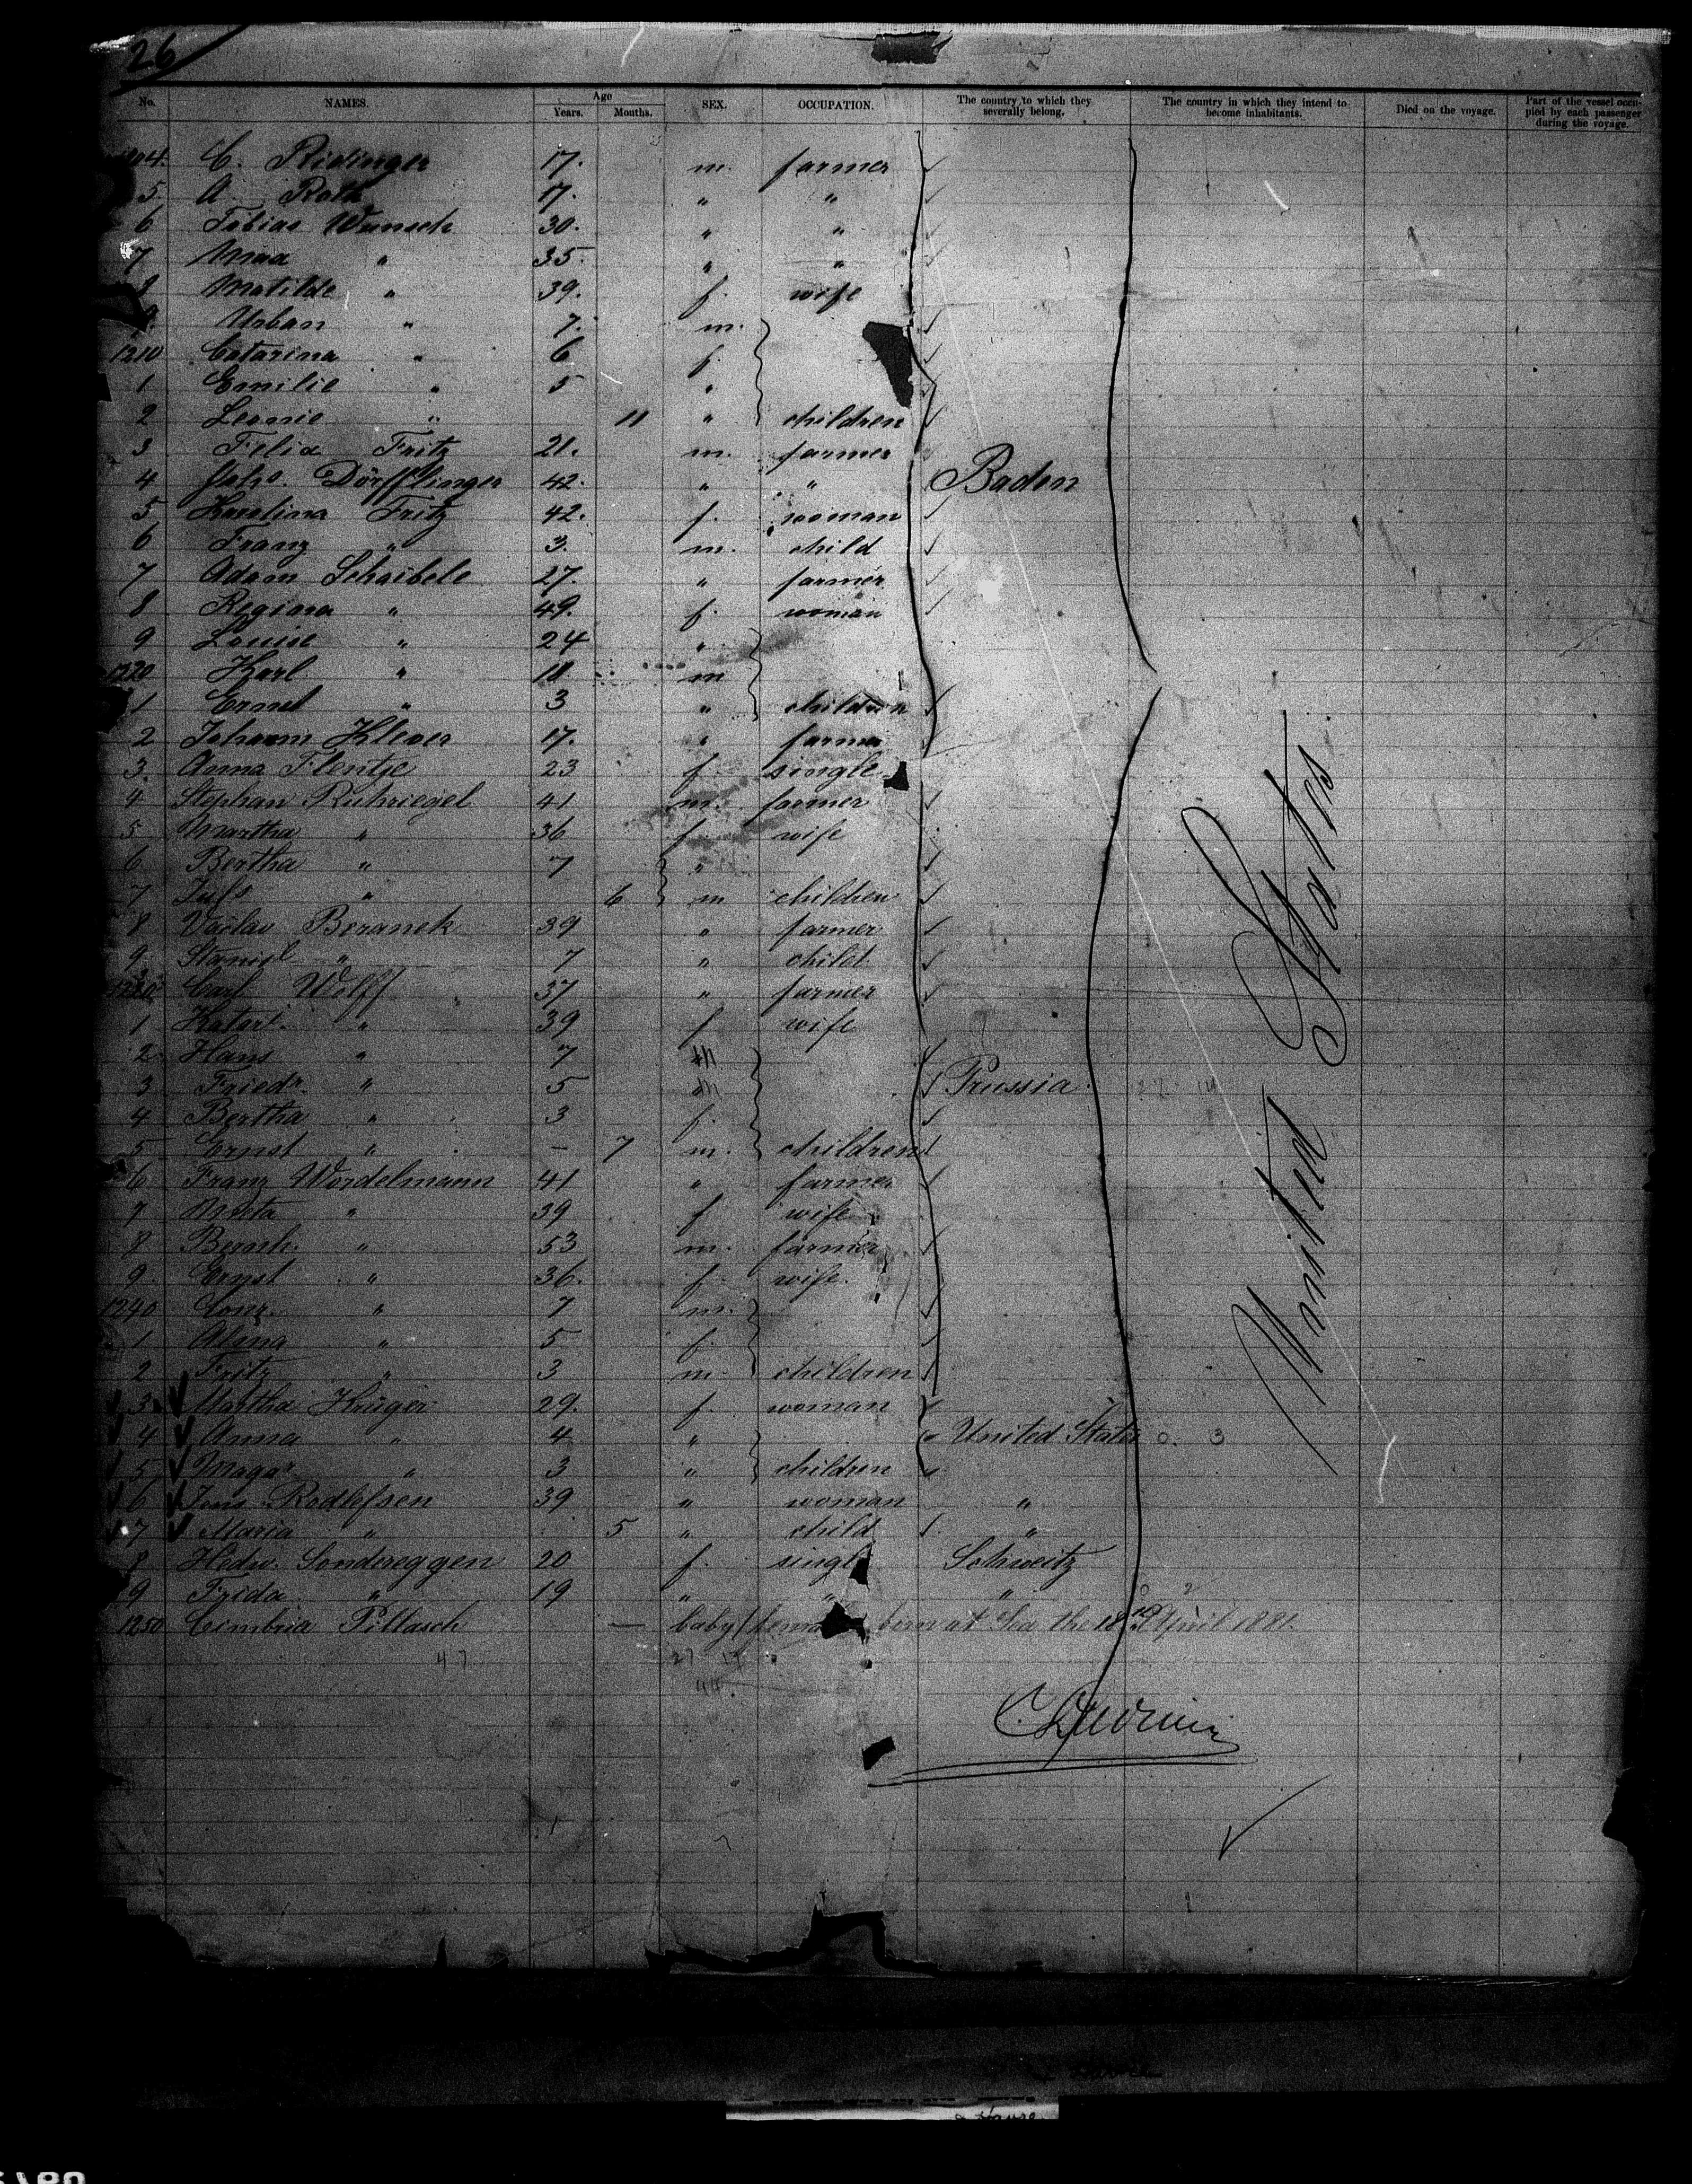 26
No. NAMES. Age Years. Months. SEX. OCCUPATION. The country to which they severally belong. The country in which they intend to become inhabitants. Died on the voyage. Part of the vessel occupied by each passenger during the voyage.
1204. C. Ridinger 17. m. farmer
5. A Roth 17. " "
6 Tobias Wunsch 30. " "
7 Max " 35. " "
8 Matilde " 39. f. wife
9 Urban " 7. m.
1210 Catarina " 6 f.
1 Emilie " 5 "
2 Leonie " 11 " children
3 Felix Fritz 21. m. farmer
4 Dörfflinger 42. " " Baden
5 Karolina Fritz 42. f. woman
6 Franz " 3. m. child
7 Adam Schaibele 27. " farmer
8 Regina " 49. f. woman
9 Louise " 24 "
1220 Karl " 11 m
1 Ernst " 3 " children
2 Johann Klever 17. " farmer
3. Anna Flentje 23 f. single
4 Stephan Ruhriegel 41 m. farmer
5 Martha " 36 f. wife
6 Bertha " 7 "
7 " 6 m children
8 Vaclav Beranek 39 " farmer
9 Stanisl " 7 " child
1230 Carl Wolff 37 " farmer
1 Katari. " 39 f wife
2 Hans " 7 m
3 Friedr. " 5 m Prussia
4 Bertha " 3 f.
5 Ernst " – 7 m. children
6 Franz Wordelmann 41 " farmer
7 Meta " 39 f wife
8 Bernh. " 53 m. farmer
9 Ernst " 36. f. wife.
1240 Conr. " 7 m.
1 Alma " 5 f.
2 Fritz " 3 m. children
3 Martha Krüger 29. f. woman
4 Anna " 4 " United States 0. 3
5 Magar " 3 " children
6 Jens Rodlefsen 39 " woman "
7 Maria " 5 " child "
8 Hedw. Sondereggen 20 f. single Schweitz
9 Frida " 19 " " "
1250 Cimbria Pillasch — baby born at Sea the 18 April 1881
United States
47 27 17
44.